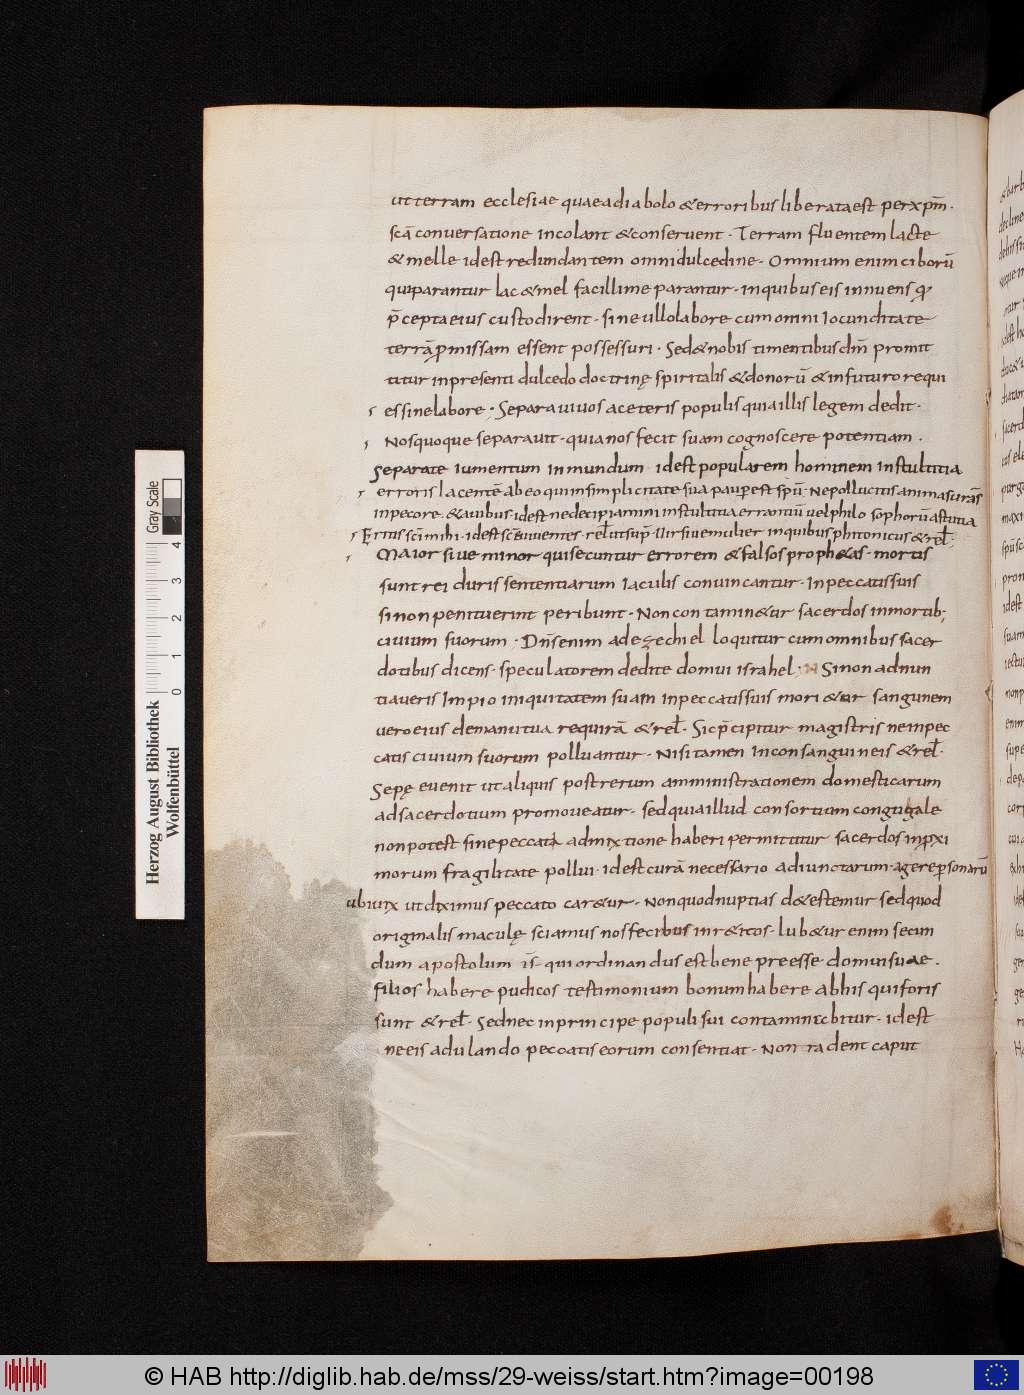 ut terram ecclesiae quae a diabolo & erroribus liberata est per xpm̄.
scā conversatione incolant & conservent. Terram fluentem lacte
& melle id est redundantem omni dulcedine. Omnium enim ciborū
qui parantur lac & mel facillime parantur. in quibus eis innuens
p̄cepta eius custodirent. sine ullo labore cum omni iocunditate
terrā p̱missam essent possessuri. Sed & nobis timentibus dm̄ promit
titur in presenti dulcedo doctrinę spiritalis & donorū & in futuro requi
es sine labore. Separavi vos a ceteris populis quia illis legem dedit.
Nos quoque separavit. quia nos fecit suam cognoscere potentiam.
Separate iumentum inmundum id est popularem hominem in stultitia
erroris iacentē ab eo qui in simplicitate sua pauper est sp̄u. Ne polluatis animas urās
in pecore. & avibus id est ne decipiamini in stultitia errantiū vel philosophorū astutia
Eritis sc̄i mihi. id est scē viventes. rel̄ ut sup̄. Vir sive mulier in quibus phitonicus & rel̄.
Maior sive minor qui secuntur errorem & falsos proph&as. mortis
sunt rei duris sententiarum iaculis convincantur. In peccatis suis
si non penituerint peribunt. Non contamin&ur sacerdos in mortib;
civium suorum. Dn̄s enim ad ezechiel loquitur cum omnibus sacer
dotibus dicens. speculatorem dedi te domui israhel. Si non adnun
tiaveris impio iniquitatem suam in peccatis suis mori&ur sanguinem
vero eius de manu tua requirā & rel̄. Sic p̄cipitur magistris ne in pec
catis civium suorum polluantur. Nisi tamen in consanguineis & rel̄.
Sepę evenit ut aliquis post rerum amministrationem domesticarum
ad sacerdotium promoveatur. sed quia illud consortium congugale
non potest sine peccati admixtione haberi permittitur sacerdos in p̱xi
morum fragilitate pollui. id est curā necessario adiunctarum. agere p̱sonarū
ubi vix ut diximus peccato car&ur. Non quod nuptias d&estemur sed quod
originalis maculę sciamus nos fecibus inr&itos. Iub&ur enim secun
dum apostolum is̄ qui ordinandus est bene preesse domui suae.
filios habere pudicos testimonium bonum habere ab his qui foris
sunt & rel̄. Sed nec in principe populi sui contaminabitur. id est
ne eis adulando peccatis eorum consentiat. Non radent caput
Herzog August Bibliothek
Wolfenbüttel
0 1 2 3 4
Gray Scale
© HAB http://diglib.hab.de/mss/29-weiss/start.htm?image=00198